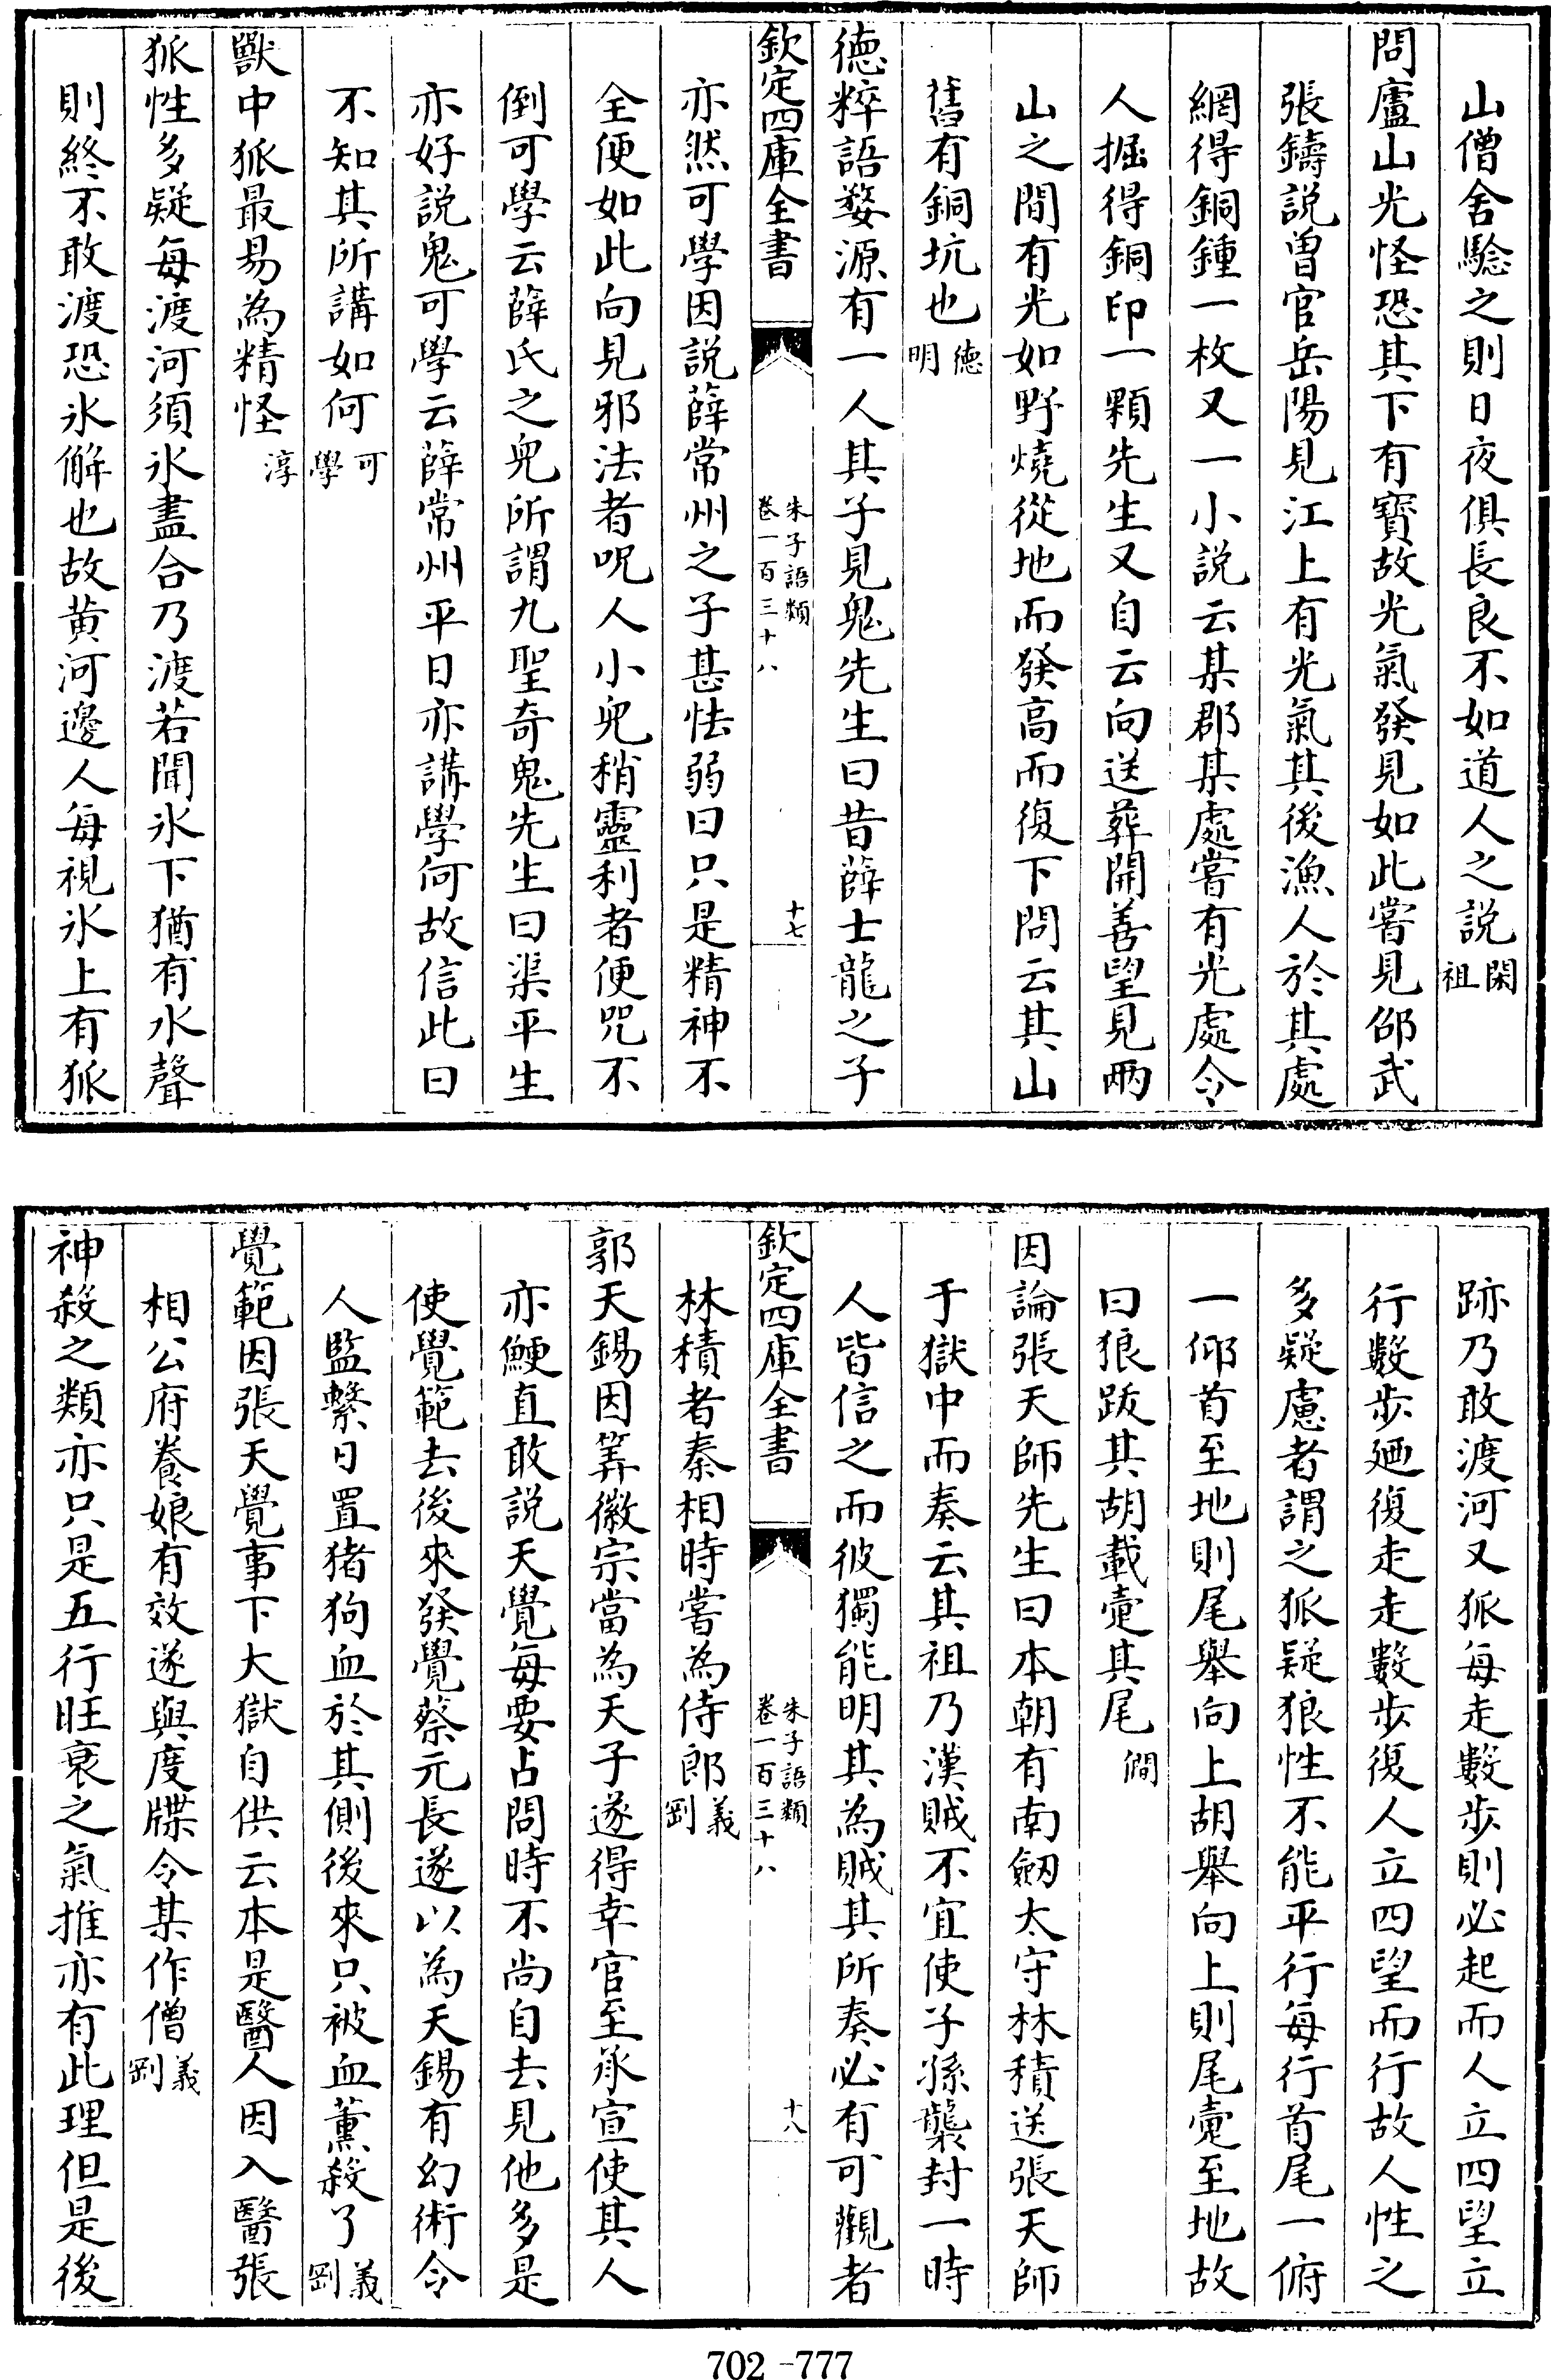 山僧舍驗之則日夜俱長良不如道人之説閎祖
問廬山光怪恐其下有寶故光氣發見如此嘗見邵武
張鑄説曽官岳陽見江上有光氣其後漁人於其處
網得銅鍾一枚又一小説云某郡某處嘗有光處令
人掘得銅印一顆先生又自云向送葬開善望見兩
山之間有光如野燒從地而發高而復下問云其山
舊有銅坑也德明
德粹語婺源有一人其子見鬼先生曰昔薛士龍之子
欽定四庫全書 朱子語類卷一百三十八 十七
亦然可學因説薛常州之子甚怯弱曰只是精神不
全便如此向見邪法者呪人小兒稍靈利者便咒不
倒可學云薛氏之兒所謂九聖奇鬼先生曰渠平生
亦好説鬼可學云薛常州平日亦講學何故信此曰
不知其所講如何可學
獸中狐最易為精怪淳
狐性多疑每渡河須氷盡合乃渡若聞氷下猶有水聲
則終不敢渡恐氷解也故黄河邊人每視氷上有狐
跡乃敢渡河又狐每走數步則必起而人立四望立
行數步廼復走走數步復人立四望而行故人性之
多疑慮者謂之狐疑狼性不能平行每行首尾一俯
一仰首至地則尾舉向上胡舉向上則尾疐至地故
曰狼跋其胡載疐其尾僩
因論張天師先生曰本朝有南劒太守林積送張天師
于獄中而奏云其祖乃漢賊不宜使子孫襲封一時
人皆信之而彼獨能明其為賊其所奏必有可觀者
欽定四庫全書 朱子語類卷一百三十八 十八
林積者秦相時嘗為侍郎義剛
郭天錫因筭徽宗當為天子遂得幸官至承宣使其人
亦鯁直敢説天覺每要占問時不尚自去見他多是
使覺範去後來發覺蔡元長遂以為天錫有幻術令
人監繫日置猪狗血於其側後來只被血薫殺了義剛
覺範因張天覺事下大獄自供云本是醫人因入醫張
相公府養娘有效遂與度牒令某作僧義剛
神殺之類亦只是五行旺衰之氣推亦有此理但是後
702-777